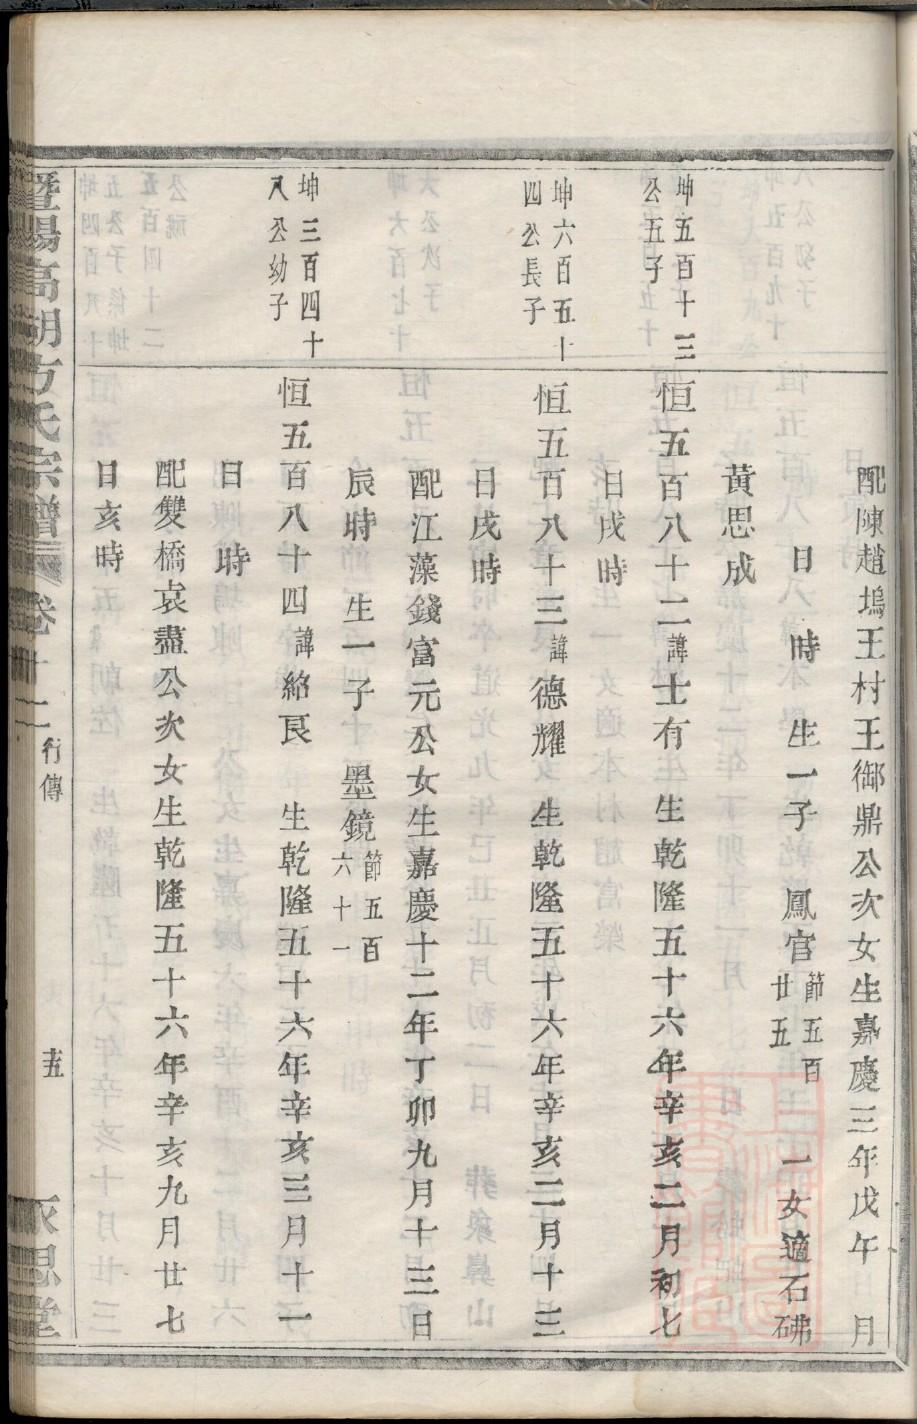 配陳趙塢王村王御鼎公次女生嘉慶三年戊午 月
日 時 生一子 鳳官 節五百廿五 一女適石砩
黃思成
坤五百十三公五子
恒五百八十二諱士有 生乾隆五十六年辛亥二月初七
日戌時
坤六百五十四公長子
恒五百八十三諱德耀 生乾隆五十六年辛亥二月十三
日戌時
配江藻錢富元公女生嘉慶十二年丁卯九月十三日
辰時 生一子 墨鏡 節五百六十一
坤三百四十八公幼子
恒五百八十四諱紹艮 生乾隆五十六年辛亥三月十一
日 時
配雙橋袁盡公次女生乾隆五十六年辛亥九月廿七
日亥時
暨陽高湖方氏宗譜 卷十二 行傳 十五 永思堂